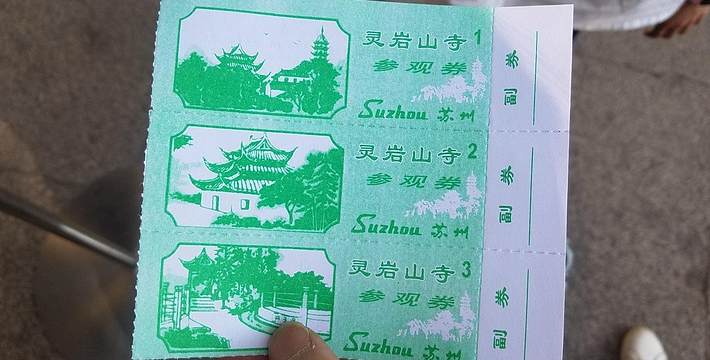 灵岩山寺 1
参观券
Suzhou 苏州
副券
灵岩山寺 2
参观券
Suzhou 苏州
副券
灵岩山寺 3
参观券
Suzhou 苏州
副券